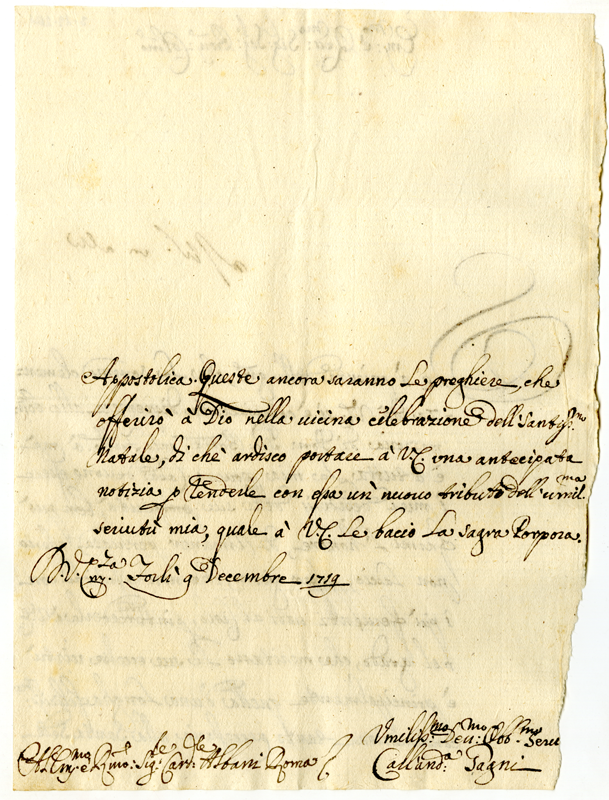 Appostolica. Queste ancora saranno Le preghiere, che
offerirò à Dio nella vicina celebrazione dell'Santiss:mo
Natale, di chè ardisco portace à V.E. vna antecipata
notizia p tenderle con essa un' nuovo tributo dell'umil:ma
seruitù mia, quale à V.E. Le bacio La sagra Porpora.
Forlì 9 Decembre 1719
Vmiliss:mo Deu:mo Obb:mo Seru
Em:mo e Rmo: Sig:re Card:le Albani Roma
Calland:a Sagni